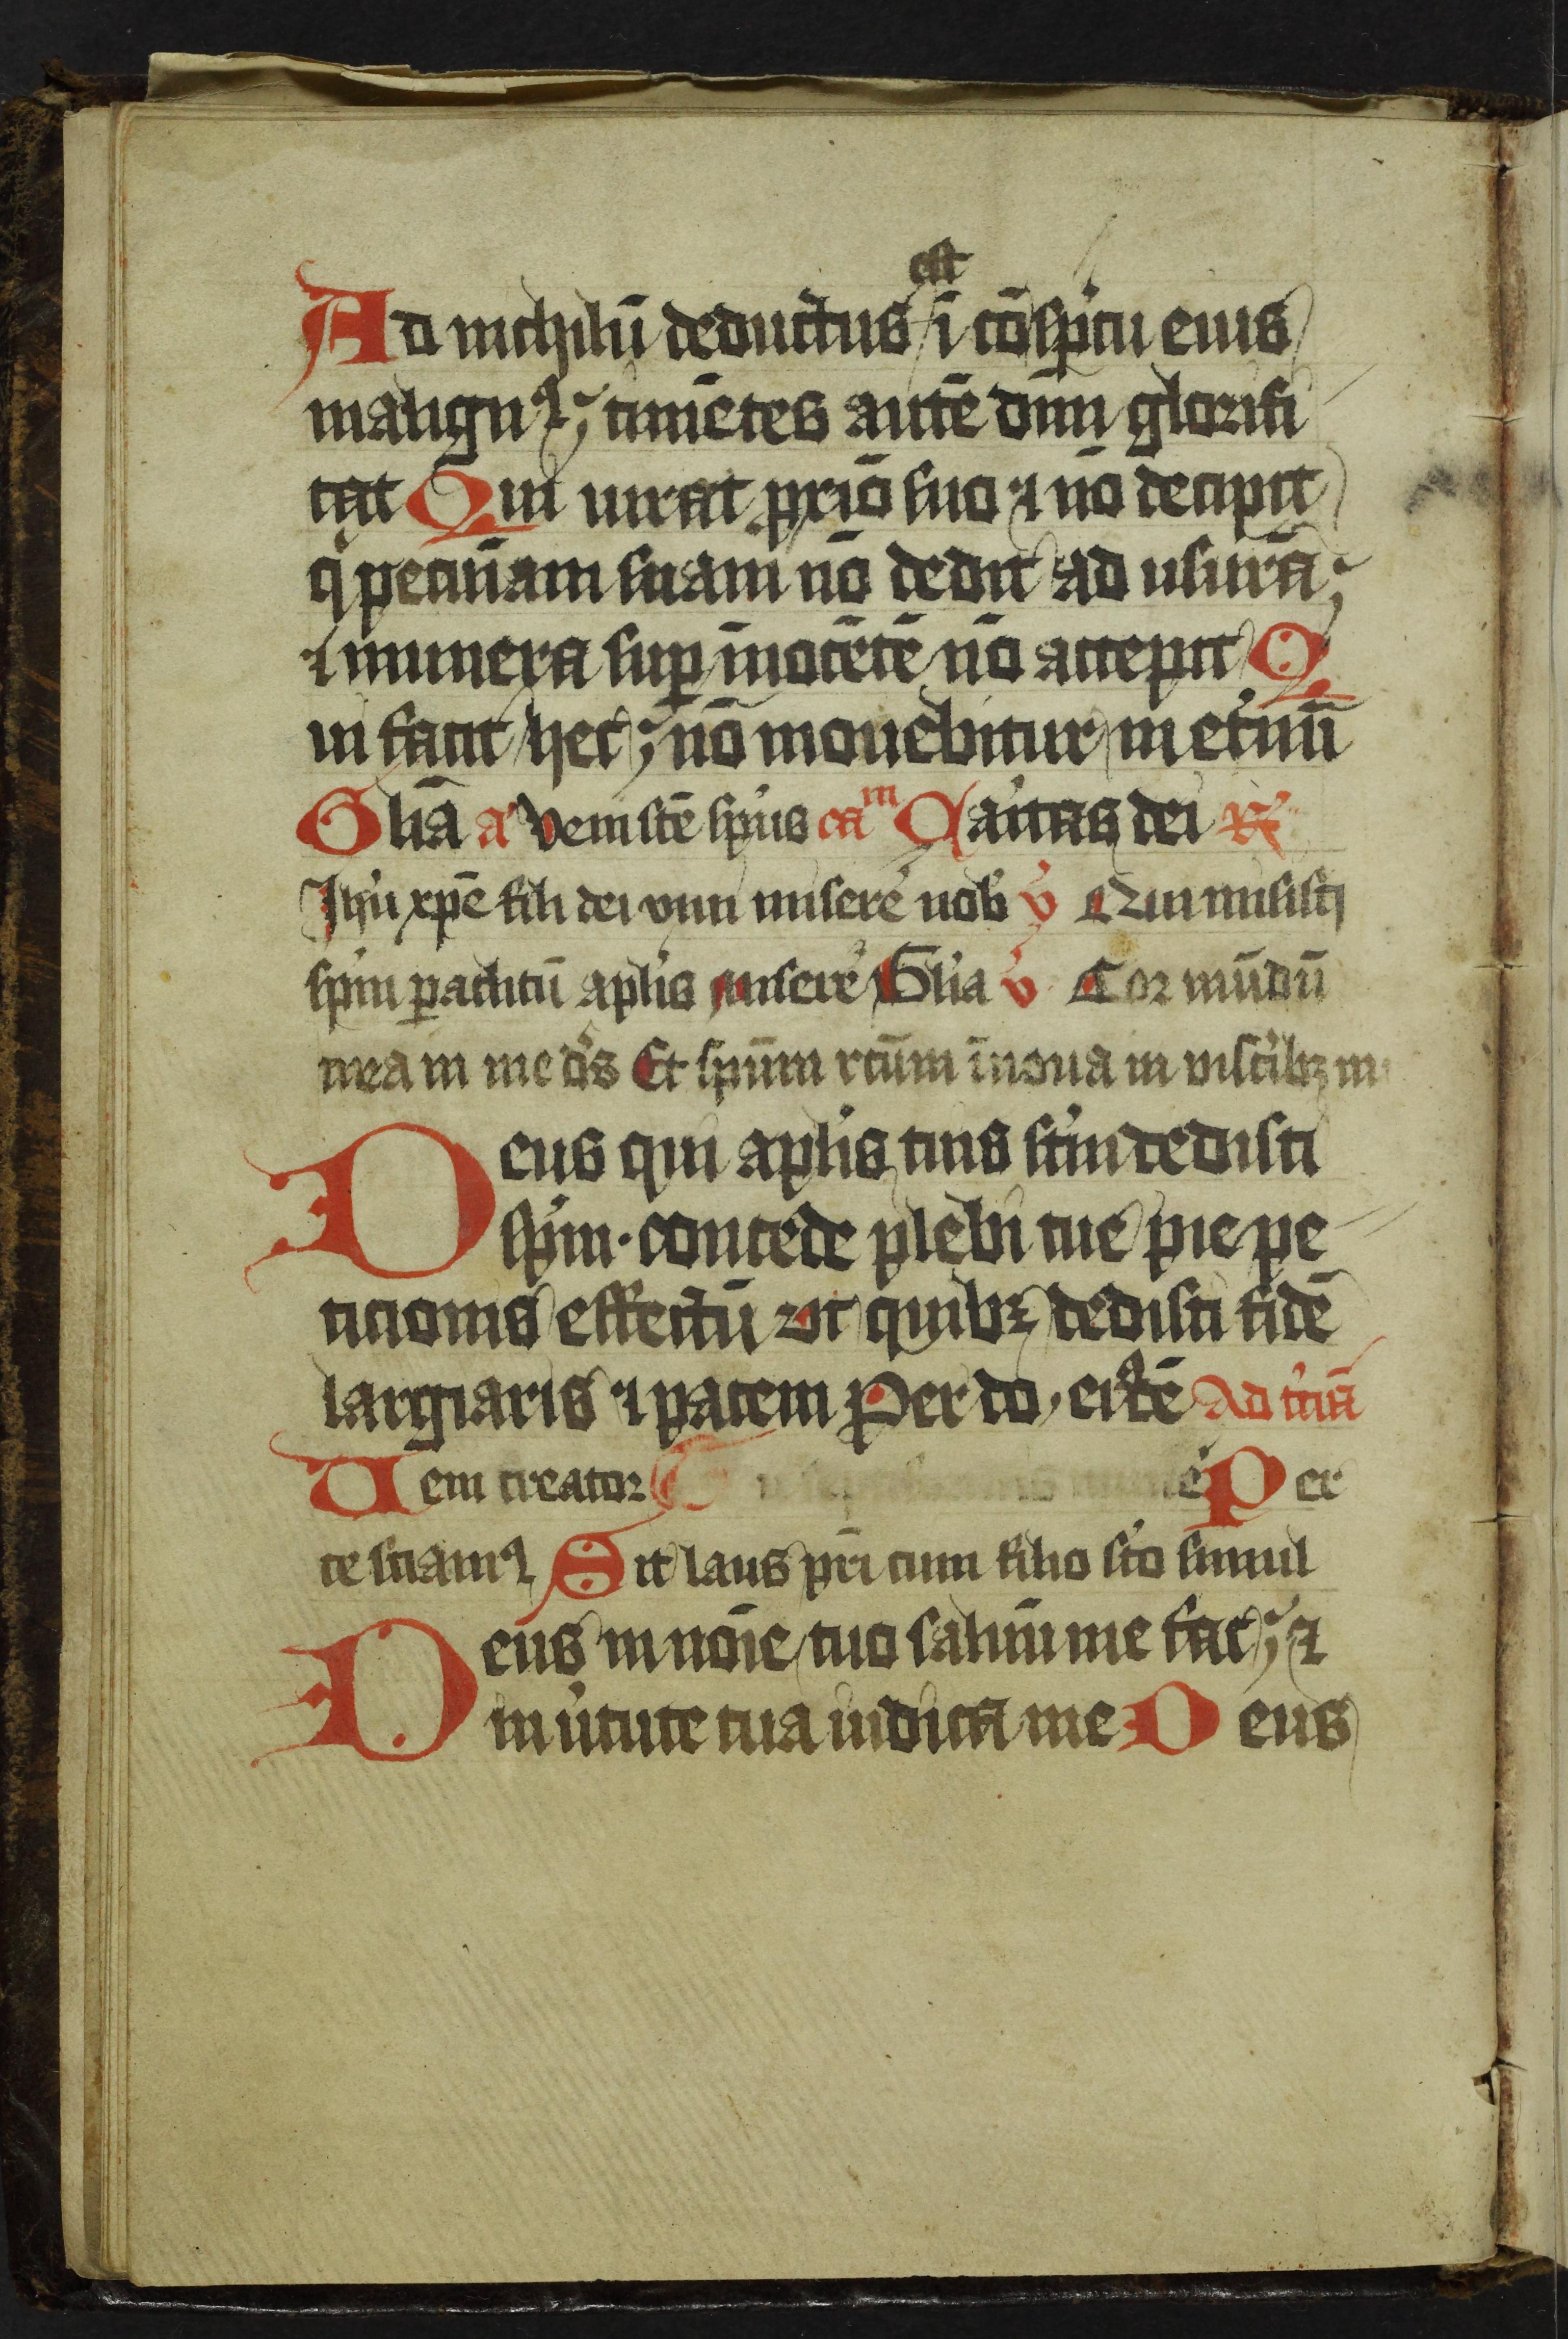 est
Ad nichilū deductus ī cōspc̄tu eius
malignꝰ; timētes autē dn̄m glorifi
cat Qui iurat prīo suo ⁊ nō decipit
q̇ pecūiam suam nō dedit ad usurā;
⁊ munera suꝑ īnocētē nō accepit Q
ui facit hec; nō mouebitur in et̓nū
Glīa a᷎ Veni scē spūs caᵐ Caritas dei ℟
Jhū xp̄e fili dei viui miserē nob̓ v̓ Qui misisti
spm̄ ꝑaclitū aplis miserē Glīa v̓ Cor mūdū
crea in me d̓s Et spm̄m rc̄um īnoua in visc̓ibꝫ m
Deus qui aplis tuis sc̄m dedisti
spm̄· concede plebi tue pie pe
ticionis effectū vt quibꝫ dedisti fidē
largiaris ⁊ pacem Per do· eiꝰdē Ad t̓ciā
Ueni creator Per
te sciamꝰ Sit laus pr̄i cum filio sc̄o simul
Deus in noīe tuo saluū me fac; ⁊
in v̓tute tua iudica me Deus